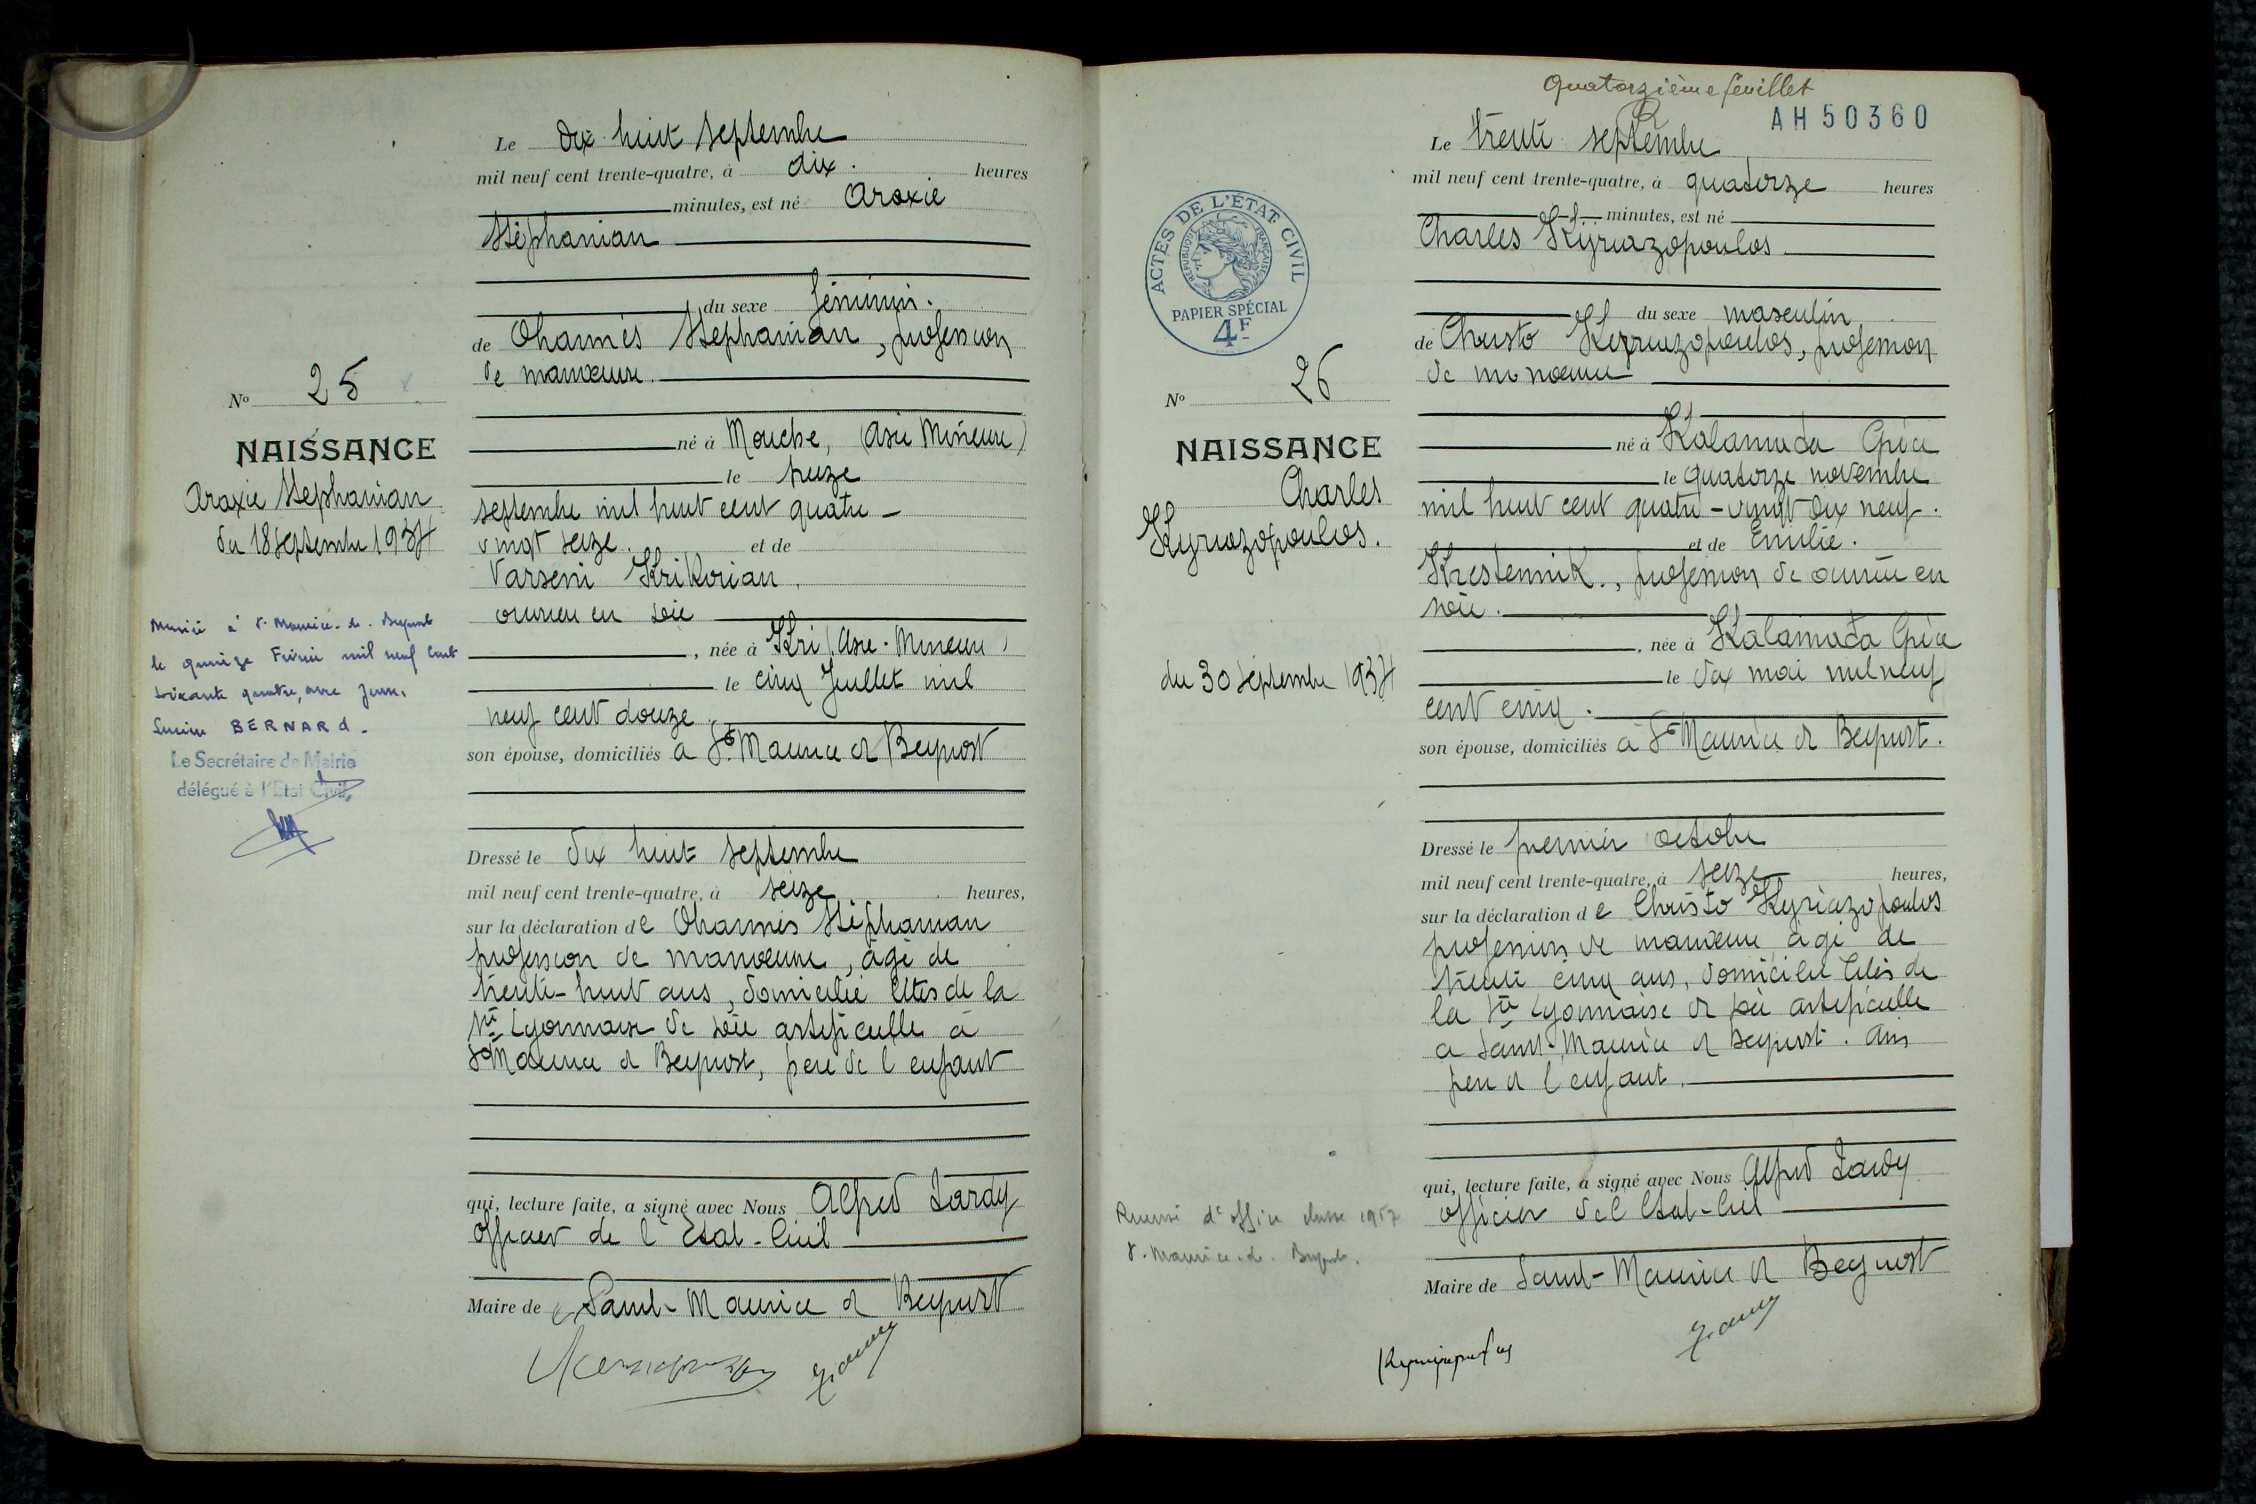 Le dix huit septembre
mil neuf cent trente-quatre, à dix. heures
minutes, est né Araxie
Stéphanian
du sexe féminin.
de Ohannés Stephanian, profession
de manœuvre.
né à Mouche, (Asie Mineure)
le treize
septembre mil huit cent quatre-
vingt seize. et de
Varseni Krikorian,
ouvrière en soie
, née à Kri (Asie-Mineure)
le cinq Juillet mil
neuf cent douze,
son épouse, domiciliés à St Maurice de Beynost
Dressé le dix huit septembre
mil neuf cent trente-quatre, à seize heures,
sur la déclaration de Ohannès Stéphanian
profession de manœuvre, âgé de
trente-huit ans, domicilié Cités de la
Sté Lyonnaise de soie artificielle à
St Maurice de Beynost, père de l'enfant
qui, lecture faite, a signé avec Nous Alfred Jardy
officier de l'Etat-Civil
Maire de Saint-Maurice de Beynost
No 25
NAISSANCE
Araxie Stephanian
du 18 septembre 1934
Marié à St. Maurice-de-Beynost
le quinze Février mil neuf cent
soixante quatre, avec Jean,
Lucien BERNARD.
Le Secrétaire de Mairie
délégué à l'Etat Civil,
Quatorzième feuillet
AH 50360
Le trente septembre
mil neuf cent trente-quatre, à quatorze heures
minutes, est né
Charles Kyriazopoulos
du sexe masculin
de Christo Kyriazopoulos, profession
de manœuvre
né à Kalamada Grèce
le quatorze novembre
mil huit cent quatre-vingt dix neuf.
et de Emilie.
Krestennik., profession de ouvrière en
soie.
, née à Kalamada Grèce
le dix mai mil neuf
cent cinq.
son épouse, domiciliés à St Maurice de Beynost.
Dressé le premier octobre
mil neuf cent trente-quatre, à seize heures,
sur la déclaration de Christo Kyriazopoulos
profession de manœuvre, âgé de
trente cinq ans, domicilié Cités de
la Sté Lyonnaise de soie artificielle
à Saint-Maurice de Beynost. Ain
père de l'enfant.
qui, lecture faite, a signé avec Nous Alfred Jardy
officier de l'Etat-Civil
Maire de Saint-Maurice de Beynost
ACTES DE L'ÉTAT CIVIL
RÉPUBLIQUE FRANÇAISE
PAPIER SPÉCIAL
4F
No 26
NAISSANCE
Charles
Kyriazopoulos.
du 30 septembre 1934
Recensé d'office classe 1957
St. Maurice-de-Beynost.